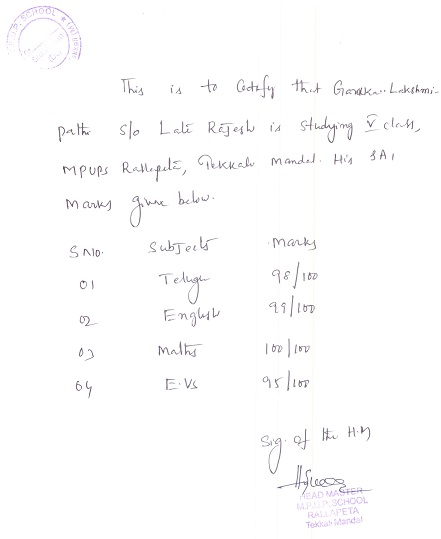 M.P.U.P. SCHOOL
This is to Certify that Garakka. Lakshmi
pathi S/o Late Rajesh is studying V class,
MPUPS Rallapeta, Tekkali Mandal. His SA1
Marks given below.
S NO. Subjects Marks
01 Telugu 98/100
02 English 99/100
03 Maths 100/100
04 E.Vs 95/100
Sig. of the H.M
HEAD MASTER
M.P.U.P. SCHOOL
RALLAPETA
Tekkali Mandal